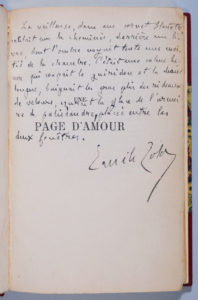 La veilleuse, dans un cornet bleuâtre,
brûlait sur la cheminée, derrière un li-
vre, dont l'ombre noyait toute une moi-
tié de la chambre. C'était une calme lueur
qui coupait le guéridon et la chaise
longue, baignait les gros plis des rideaux
de velours, azurait la glace de l'armoire
UNE
de palissandre, placée entre les
PAGE D'AMOUR
deux fenêtres.
Emile Zola